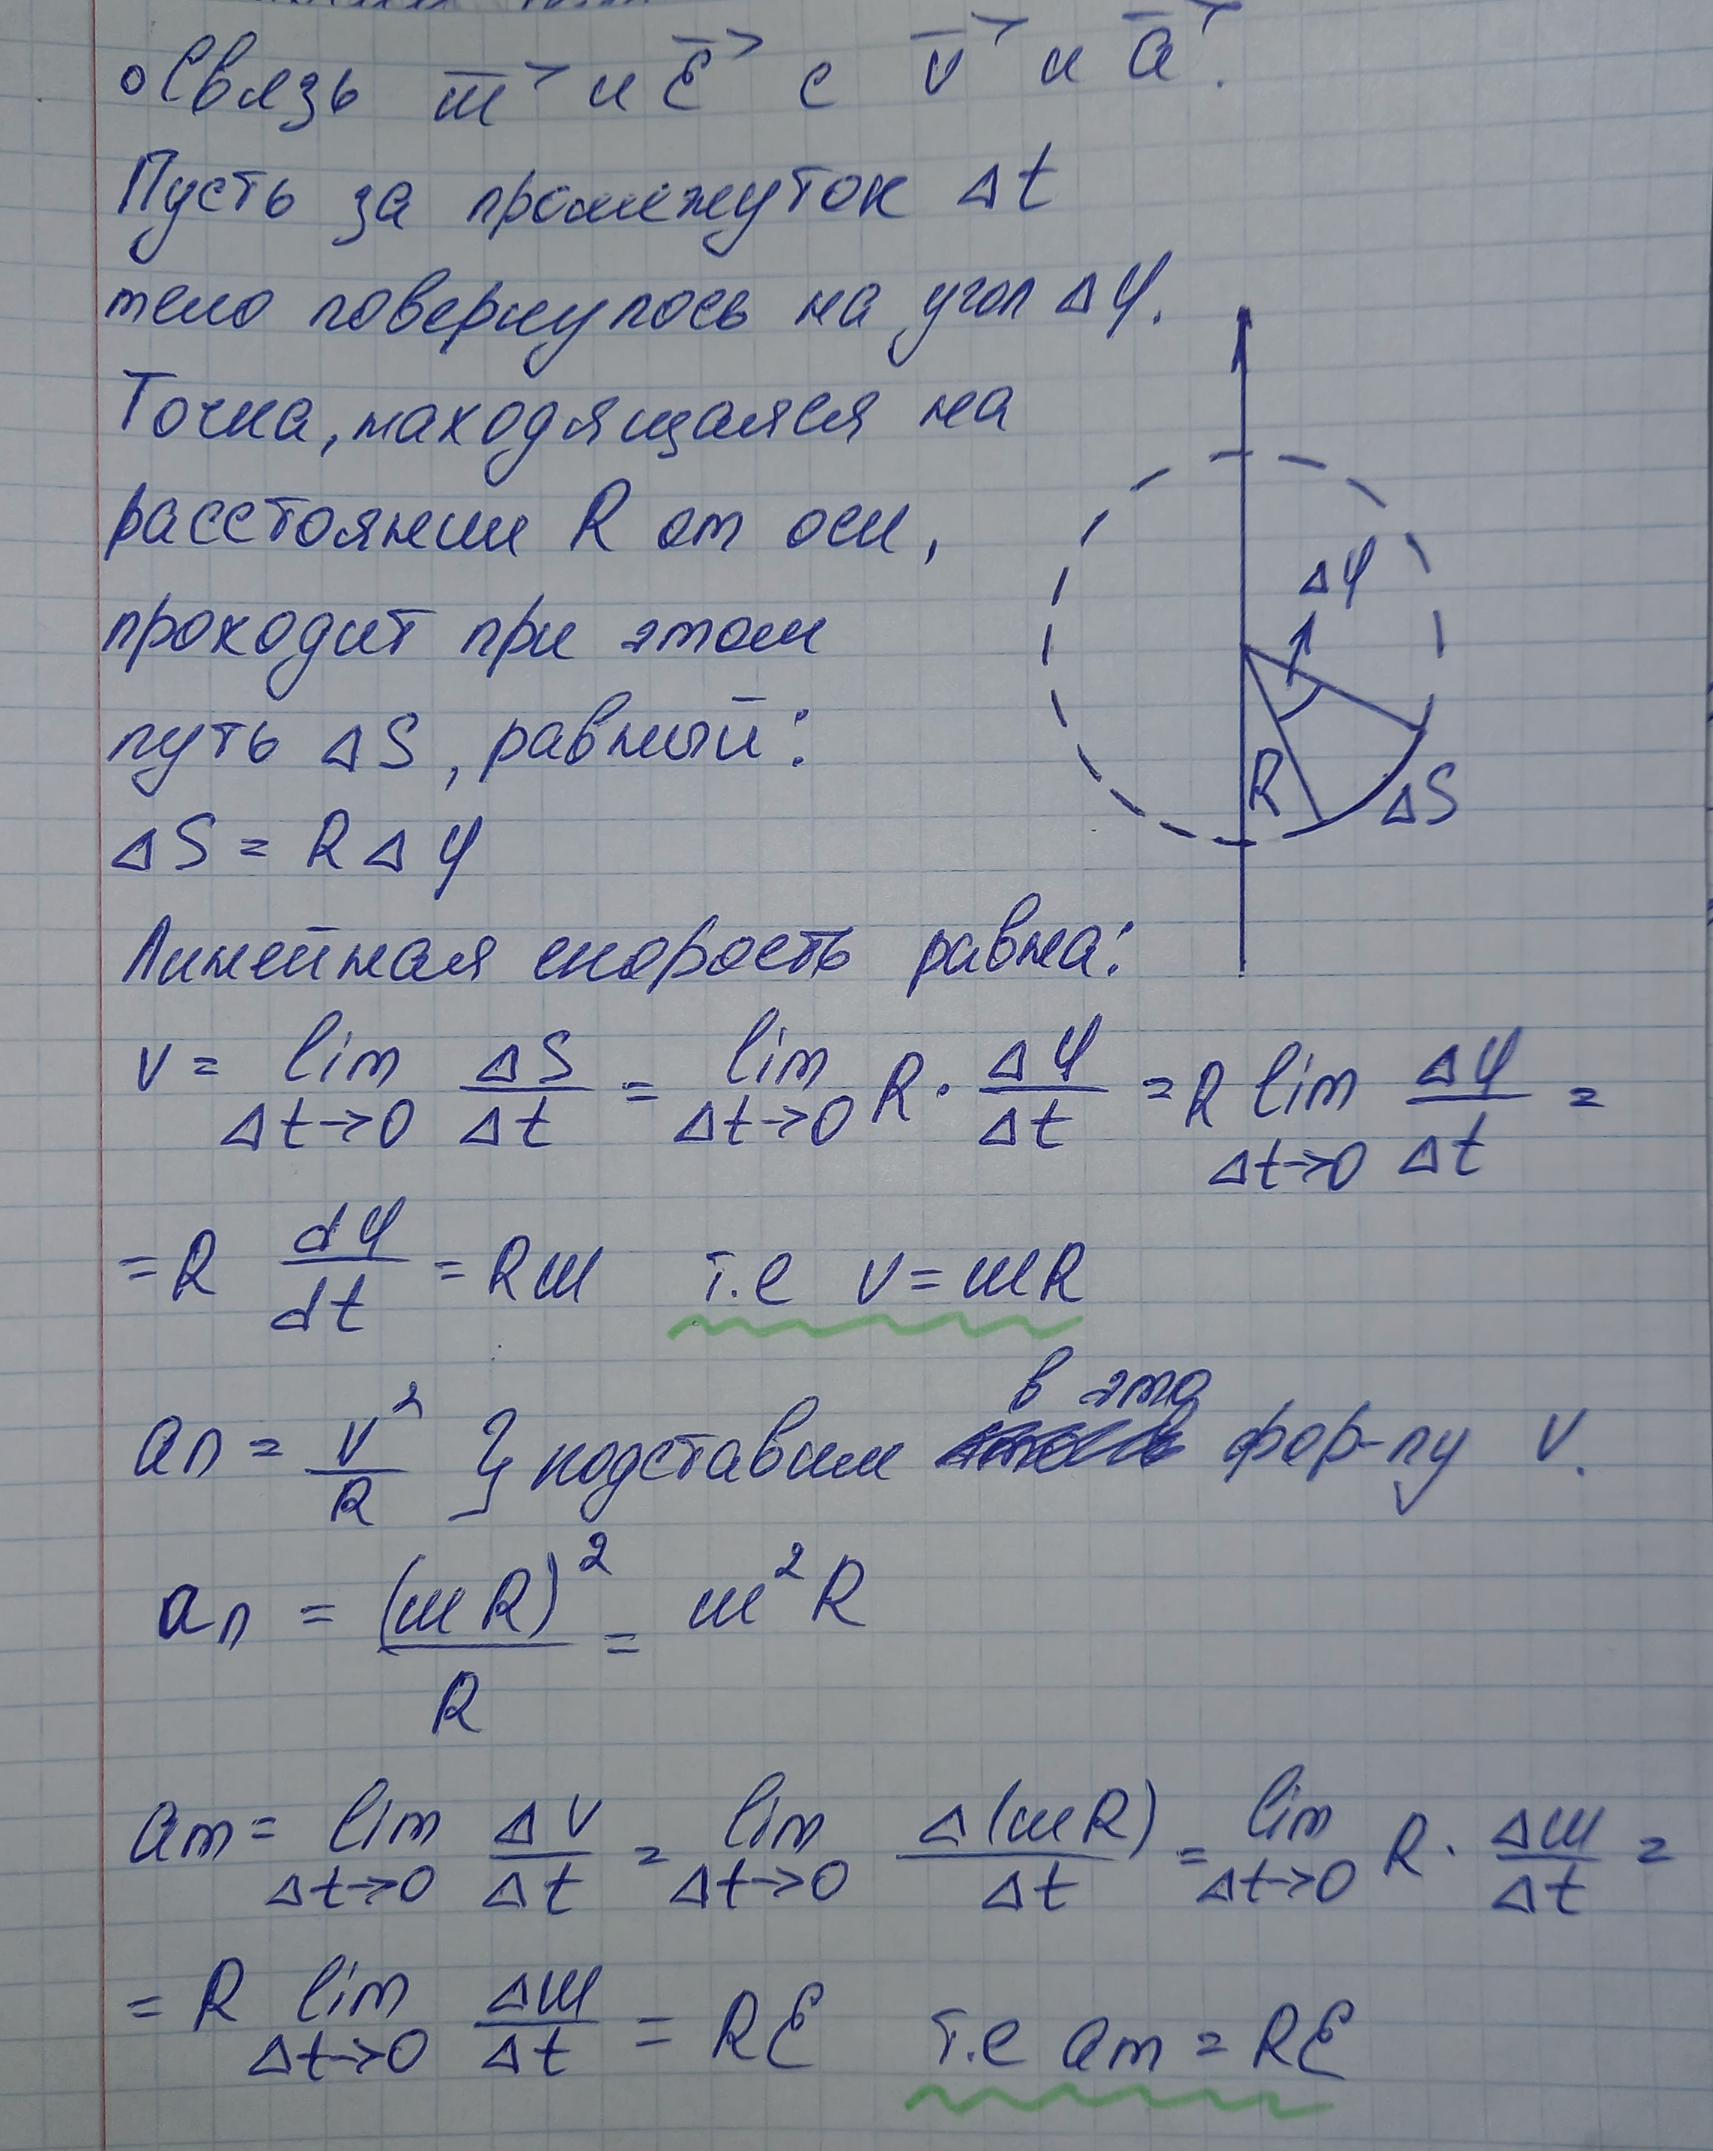 Связь ω⃗ и ε⃗ с v⃗ и a⃗.
Пусть за промежуток Δt
тело повернулось на угол Δφ.
Точка, находящаяся на
расстоянии R от оси,
проходит при этом
путь ΔS, равный:
ΔS = RΔφ
Δφ
R
ΔS
Линейная скорость равна:
v = lim Δt→0 ΔS/Δt = lim Δt→0 R · Δφ/Δt = R lim Δt→0 Δφ/Δt =
= R dφ/dt = Rω т.е v = ωR
aₙ = v²/R } подставим в эту фор-лу v.
aₙ = (ωR)²/R = ω²R
aτ = lim Δt→0 Δv/Δt = lim Δt→0 Δ(ωR)/Δt = lim Δt→0 R · Δω/Δt =
= R lim Δt→0 Δω/Δt = Rε т.е aτ = Rε